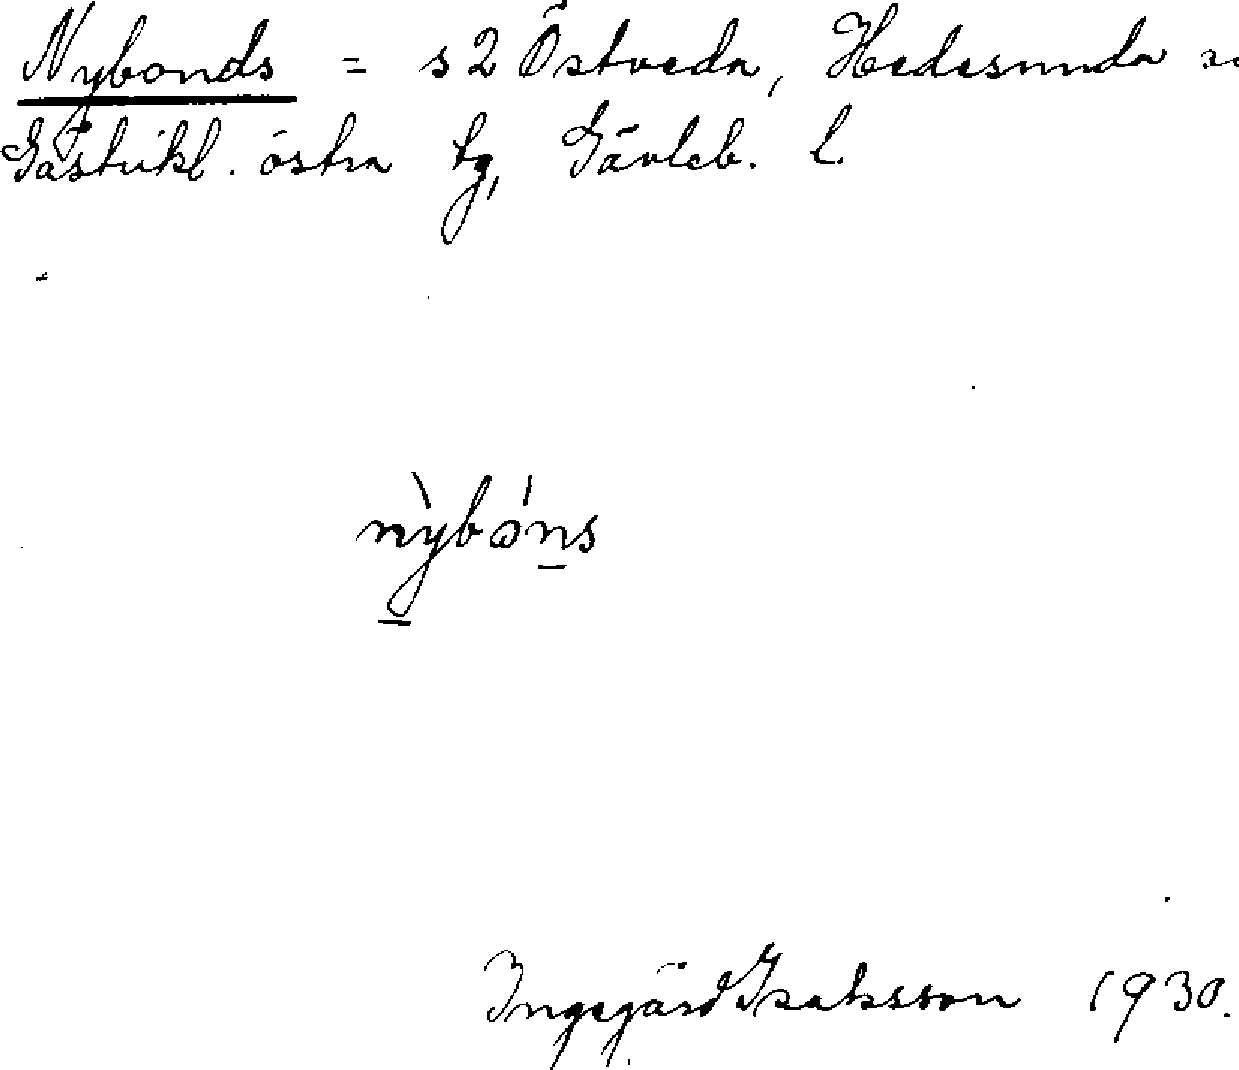 Nybonds = s 2 Östveda, Hedesunda s
Gästrikl. östra tg, Gävleb. l.
nỳbɷ́ns
Ingegärd Isaksson 1930.